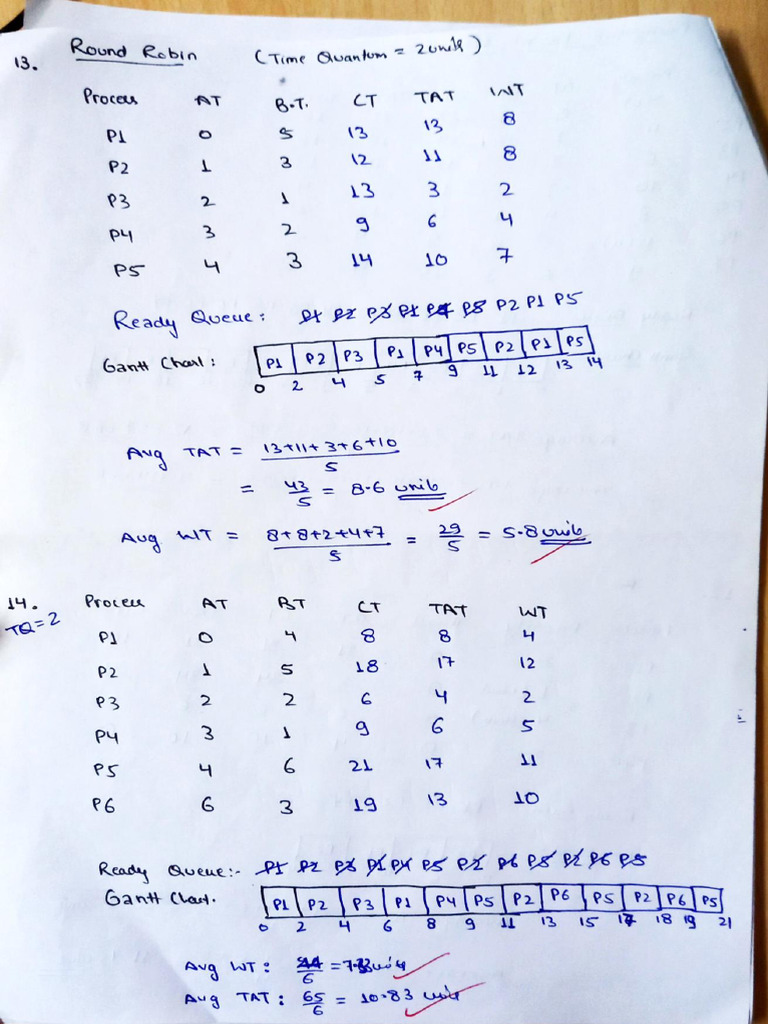 13. Round Robin (Time Quantum = 2units)
Process AT B.T. CT TAT WT
P1 0 5 13 13 8
P2 1 3 12 11 8
P3 2 1 13 3 2
P4 3 2 9 6 4
P5 4 3 14 10 7
Ready Queue: P1 P2 P3 P1 P4 P5 P2 P1 P5
Gantt Chart: P1 P2 P3 P1 P4 P5 P2 P1 P5
0 2 4 5 7 9 11 12 13 14
Avg TAT = 13+11+3+6+10 / 5
= 43/5 = 8.6 units
Avg WT = 8+8+2+4+7 / 5 = 29/5 = 5.8 units
14. Process AT BT CT TAT WT
TQ=2
P1 0 4 8 8 4
P2 1 5 18 17 12
P3 2 2 6 4 2
P4 3 1 9 6 5
P5 4 6 21 17 11
P6 6 3 19 13 10
Ready Queue:- P1 P2 P3 P1 P4 P5 P2 P6 P5 P2 P6 P5
Gantt Chart. P1 P2 P3 P1 P4 P5 P2 P6 P5 P2 P6 P5
0 2 4 6 8 9 11 13 15 17 18 19 21
Avg WT: 44/6 = 7.33 units
Avg TAT: 65/6 = 10.83 units